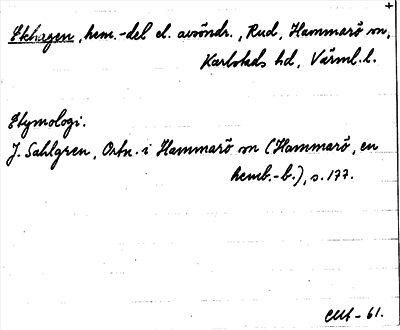 +
Ekhagen, hem.-del el. avsöndr., Rud, Hammarö sn,
Karlstads hd, Värml. l.
Etymologi.
J. Sahlgren, Ortn. i Hammarö sn (Hammarö, en
hemb.-b.), s. 177.
-61.